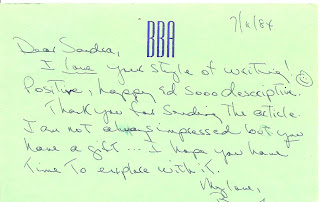 BBA
7/11/84
Dear Sandra,
I love your style of writing! ©
Positive, happy Ed sooo descriptive.
Thank you for sending the article.
I am not always impressed but you
have a gift... I hope you have
time to explore with it.
My love,